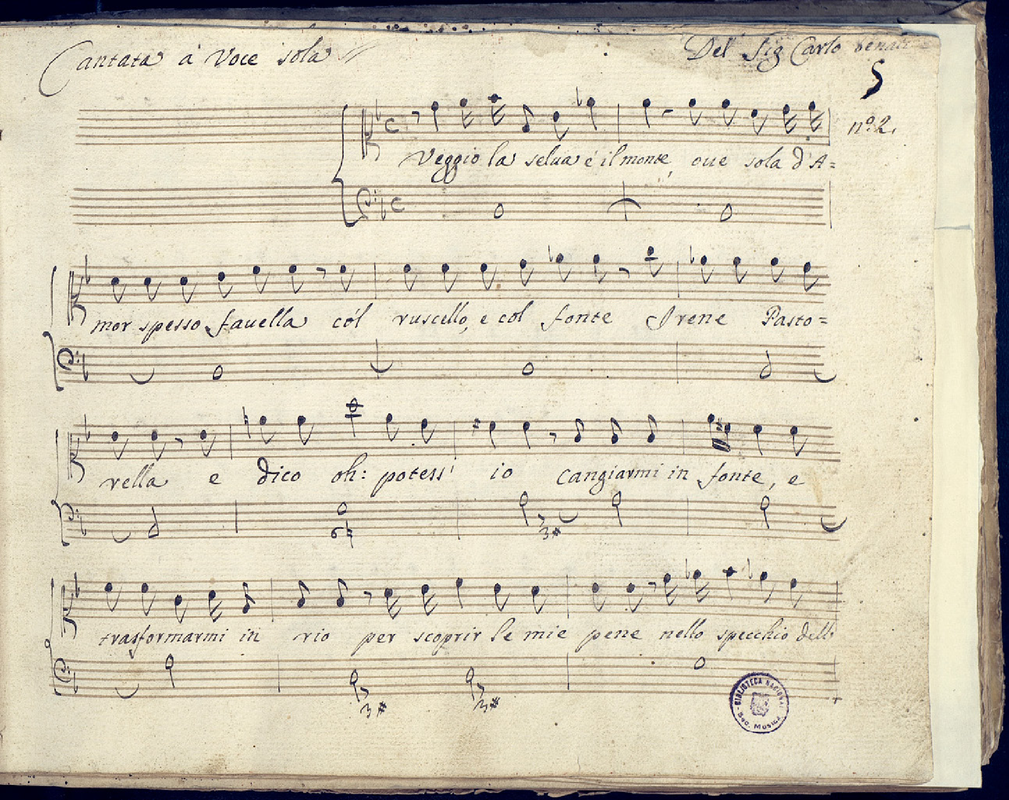 Cantata à Voce sola
Del Sig Carlo
5
nº 2.
Veggio la selua é il monte oue sola d'A=
mor spesso fauella cól ruscello, e col fonte Irene Pasto=
rella e dico oh: potess' io Cangiarmi in fonte, e
6♮ 3#
trasformarmi in rio per scoprir le mie pene nello specchio dell
3# 3#
BIBLIOTECA NACIONAL
Sec. Musica